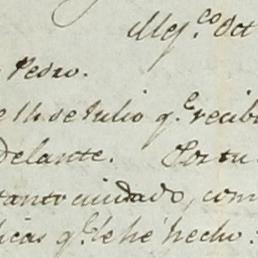 Mej.co Oct
Pedro.
e 14 de Julio q.e recib
delante. Por tu
tanto cuidado, com
icas q.e le hé hecho: